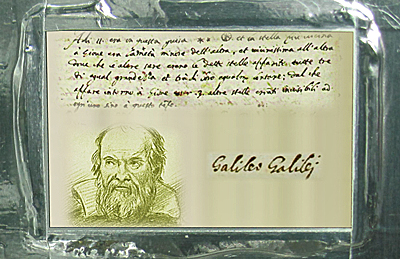 Adì 11. era in questa guisa et la stella più vicina
à Giove era la metà minore dell'altra, et vicinissima all'altra
dove che le altre sere erano le dette stelle apparite tutte tre
di equal grandezza et trà di loro equalm. lontane; dal che
appare intorno à Giove esser 3 altre stelle erranti invisibili ad
ogn'uno sino à questo tempo.
Galileo Galilej